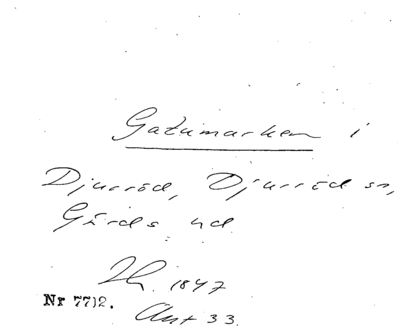 Gatumarken i
Djurröd, Djurröd sn,
Gärds hd.
1847
Nr 7712.
Ant 33.